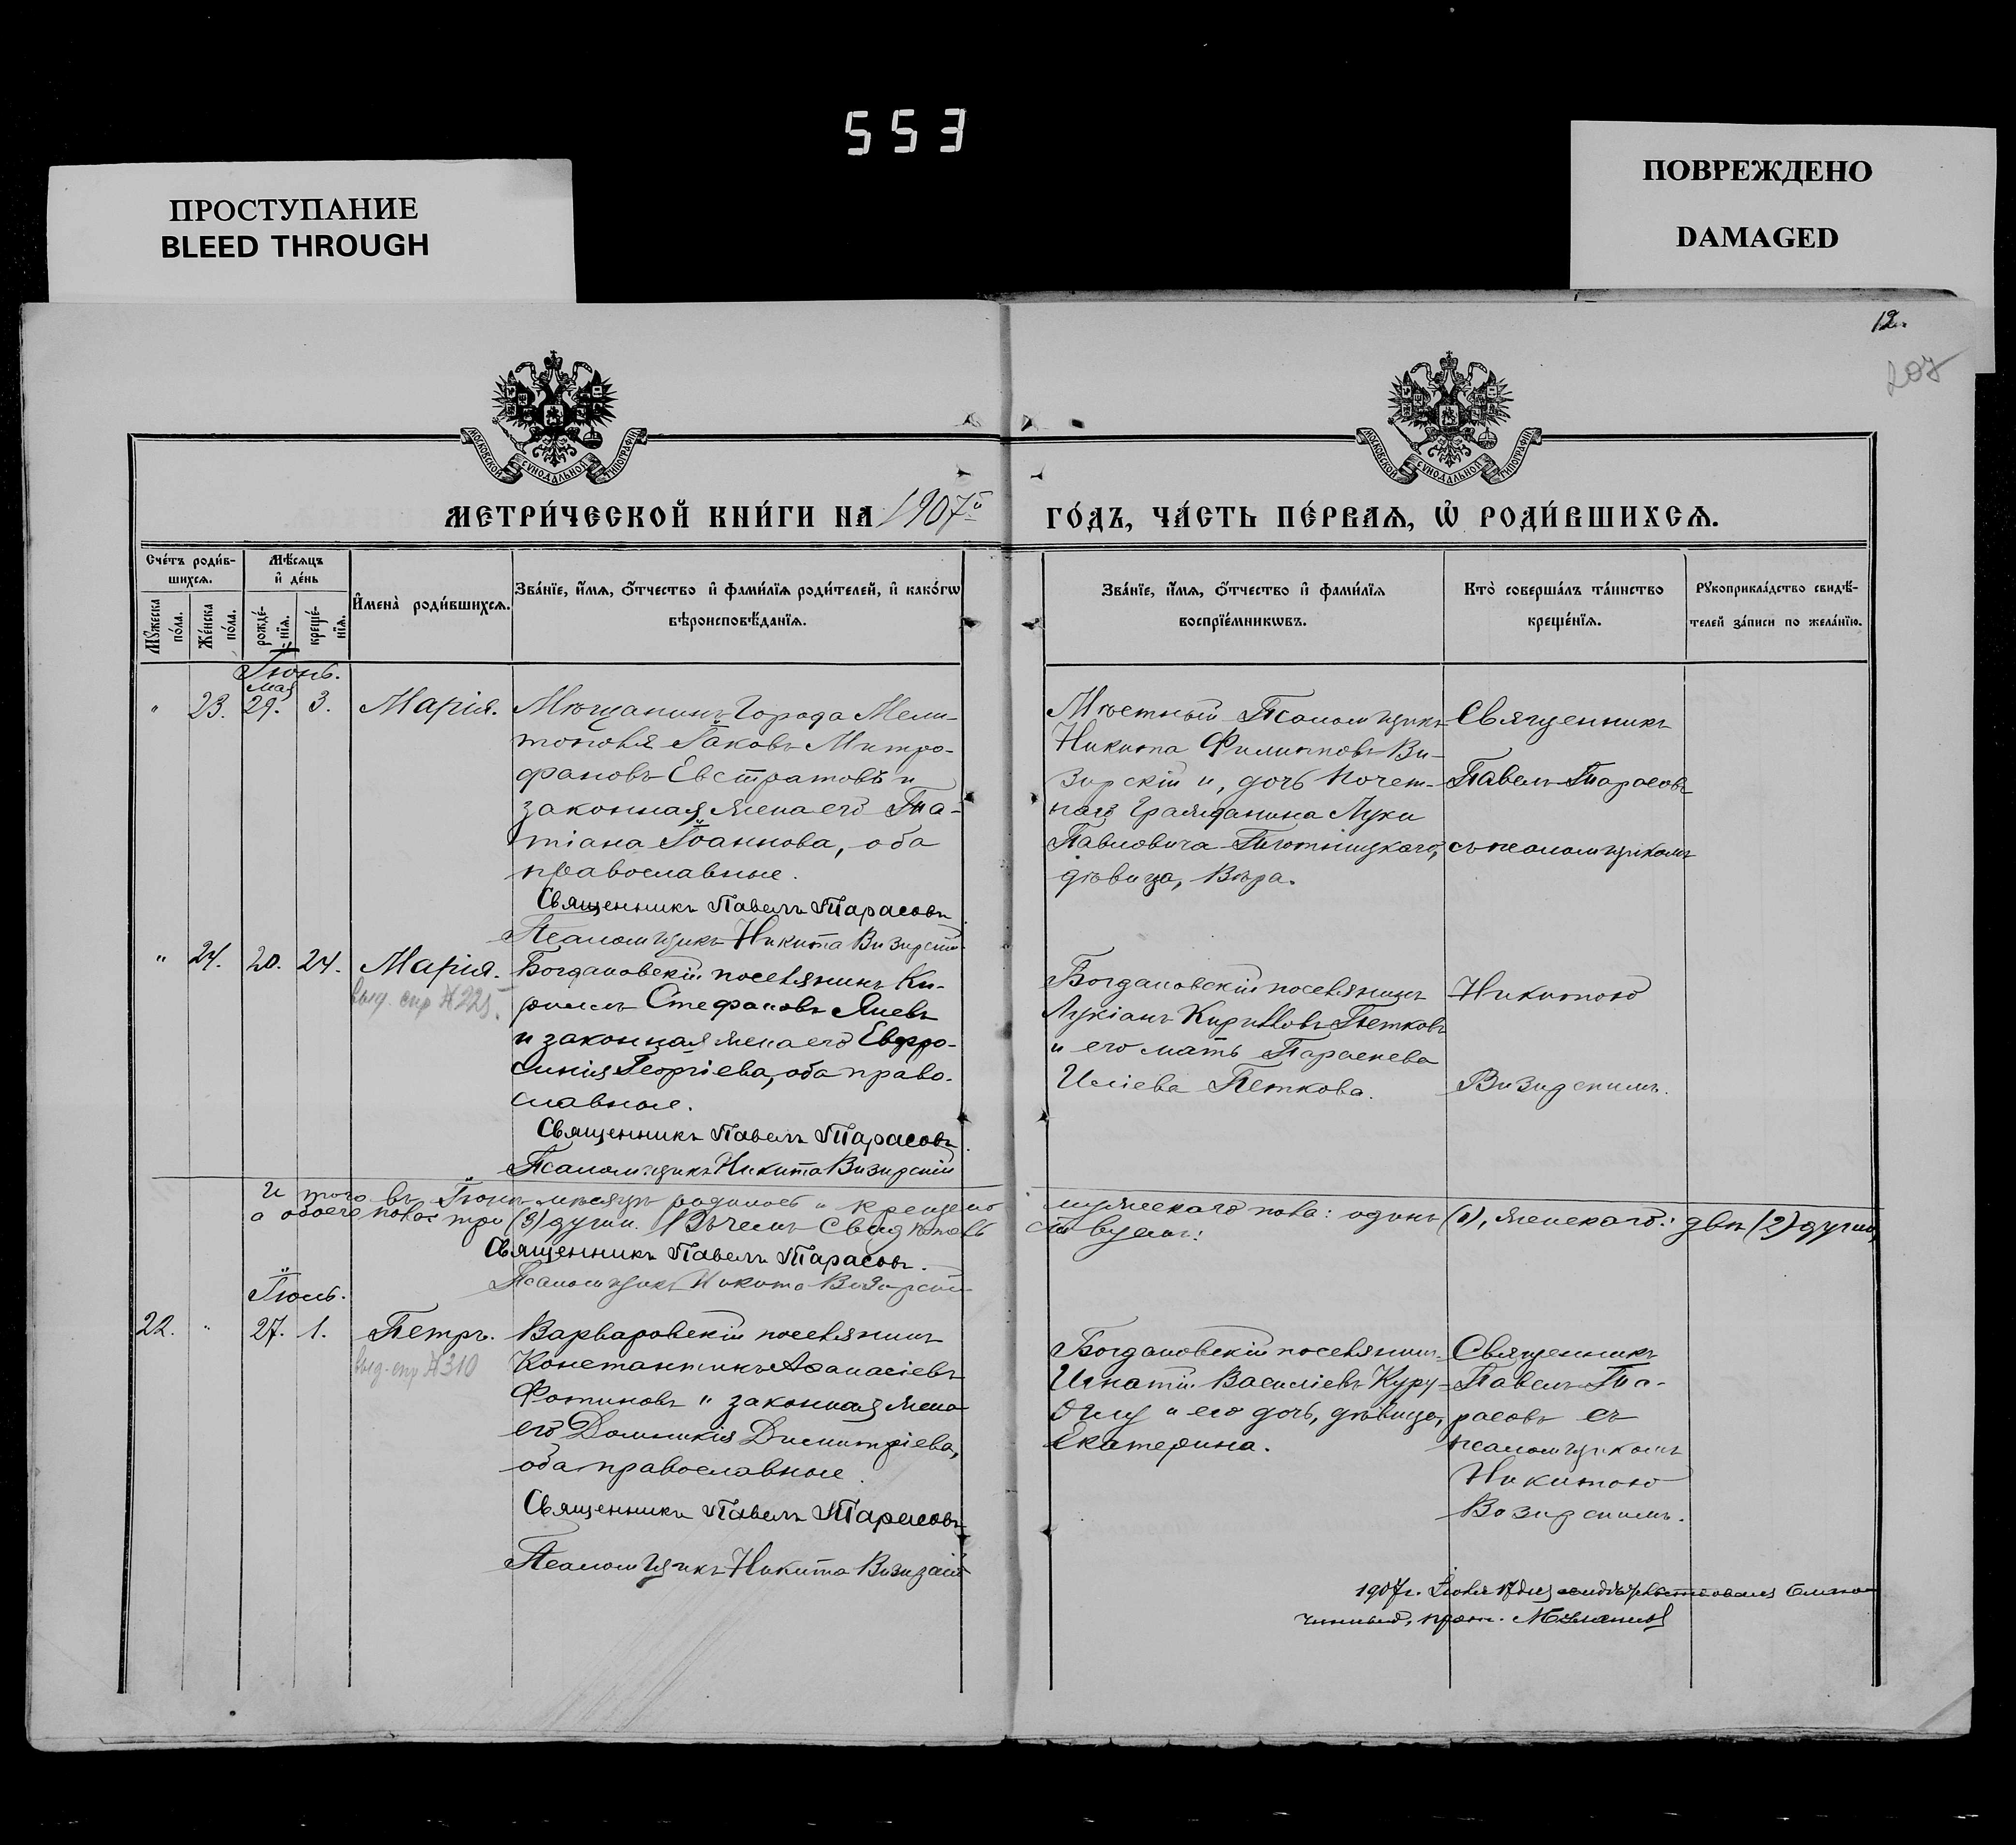 553
ПРОСТУПАНИЕ
BLEED THROUGH
ПОВРЕЖДЕНО
DAMAGED
12.
207
МОСКОВСКОЙ СѴНОДАЛЬНОЙ ТИПОГРАФІИ
МОСКОВСКОЙ СѴНОДАЛЬНОЙ ТИПОГРАФІИ
МЕТРИ́ЧЕСКОЙ КНИ́ГИ НА 1907й
ГО́ДЪ, ЧА́СТЬ ПЕ́РВАѦ, Ѡ҆ РОДИ́ВШИХСѦ.
Сче́тъ роди́в-
шихсѧ.
Мѹ́жеска по́ла.
Же́нска по́ла.
Мѣ́сѧцъ
и҆ де́нь
рожде́-нїѧ.
креще́-нїѧ.
И҆мена̀ роди́вшихсѧ.
Зва́нїе, и҆́мѧ, ѻ҆́тчество и҆ фами́лїѧ роди́телей, и҆ како́гѡ
вѣроисповѣ́данїѧ.
Зва́нїе, и҆́мѧ, ѻ҆́тчество и҆ фами́лїѧ
воспрїе́мникѡвъ.
Кто̀ соверша́лъ та́инство
креще́нїѧ.
Рѹкоприкла́дство свидѣ́-
телей за́писи по жела́нїю.
Іюнь.
" 23. мая 29. 3. Марія.
Мѣщанинъ города Мели-
тополя Іаковъ Митро-
фановъ Евстратовъ и
законная жена его Та-
тіана Іоаннова, оба
православные.
Священникъ Павелъ Тарасовъ
Псаломщикъ Никита Визирскій
Мѣстный Псаломщикъ
Никита Филипповъ Ви-
зирскій и, дочь почет-
наго гражданина Луки
Павловича
дѣвица, Вѣра.
Священникъ
Павелъ Тарасовъ
съ псаломщикомъ
" 24. 20. 24. Марія.
выд. спр №225.
Богдановскій поселянинъ Ки-
риллъ Стефановъ Яневъ
и законная жена его Евфро-
синія Георгіева, оба право-
славные.
Священникъ Павелъ Тарасовъ
Псаломщикъ Никита Визирскій
Богдановскій поселянинъ
Лукіанъ Кирилловъ Петковъ
и его мать Параскева
Иліева Петкова.
Никитою
Визирскимъ.
Итого въ Іюнѣ мѣсяцѣ родилось и крещено мужескаго пола: одинъ (1), женскаго: двѣ (2) души,
а обоего пола три (3) души. Въ чемъ свидѣтельствуемъ:
Священникъ Павелъ Тарасовъ.
Псаломщикъ Никита Визирскій
Іюль.
22. " 27. 1. Петръ.
выд. спр №310
Варваровскій поселянинъ
Константинъ Аѳанасіевъ
Фотиновъ и законная жена
его Домникія Димитріева,
оба православные.
Священникъ Павелъ Тарасовъ
Псаломщикъ Никита Визирскій
Богдановскій поселянинъ
Игнатій Василіевъ Куру-
оглу и его дочь, дѣвица,
Екатерина.
Священникъ
Павелъ Та-
расовъ съ
псаломщикомъ
Никитою
Визирскимъ.
1907 г. Іюля 17 дня свидѣтельствовалъ Благо-
чинный, прот.